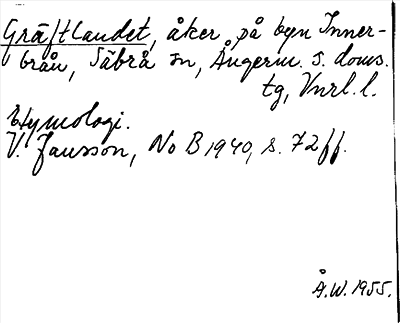 Gräftlandet, åker på byn Inner-
brån, Säbrå sn, Ångerm. s. doms.
tg, Vnrl. l.
Etymologi.
V. Jansson, No B 1940, s. 72 ff.
Å.W. 1955.